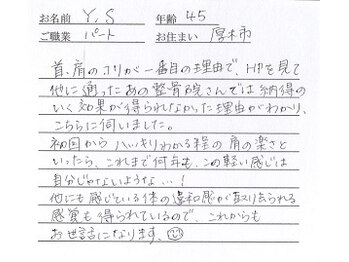 お名前 Y.S 年齢 45
ご職業 パート お住まい 厚木市
首、肩のコリが一番目の理由で、HPを見て
他に通ったあの整骨院さんでは納得の
いく効果が得られなかった理由がわかり、
こちらに伺いました。
初回からハッキリわかる程の肩の楽さと
いったら、これまで何年も、この軽い感じは
自分じゃないような…!
他にも感じている体の違和感が取り去られる
感覚も得られているので、これからも
お世話になります。